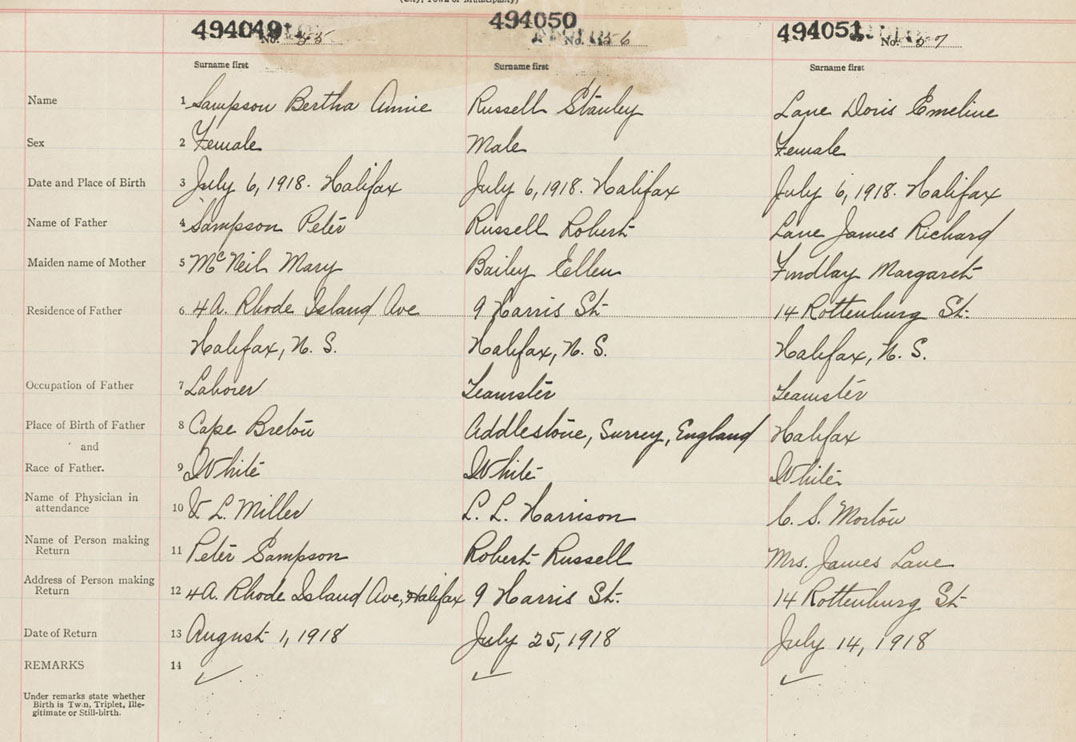 (City, Town or Municipality)
494049 494050 494051
No. 55 No. 56 No. 57
Surname first Surname first Surname first
Name 1 Sampson Bertha Annie Russell Stanley Lane Doris Emeline
Sex 2 Female Male Female
Date and Place of Birth 3 July 6, 1918. Halifax July 6, 1918. Halifax July 6, 1918. Halifax
Name of Father 4 Sampson Peter Russell Robert Lane James Richard
Maiden name of Mother 5 McNeil Mary Bailey Ellen Findlay Margaret
Residence of Father 6 4A. Rhode Island Ave 9 Harris St. 14 Rottenburg St.
Halifax, N. S. Halifax, N. S. Halifax, N. S.
Occupation of Father 7 Laborer Teamster Teamster
Place of Birth of Father 8 Cape Breton Addlestone, Surrey, England Halifax
and
Race of Father. 9 White White White
Name of Physician in
attendance 10 L. Miller L. L. Harrison C. S. Morton
Name of Person making
Return 11 Peter Sampson Robert Russell Mrs. James Lane
Address of Person making
Return 12 4A. Rhode Island Ave, Halifax 9 Harris St. 14 Rottenburg St
Date of Return 13 August 1, 1918 July 25, 1918 July 14, 1918
REMARKS 14
Under remarks state whether
Birth is Twin, Triplet, Ille-
gitimate or Still-birth.